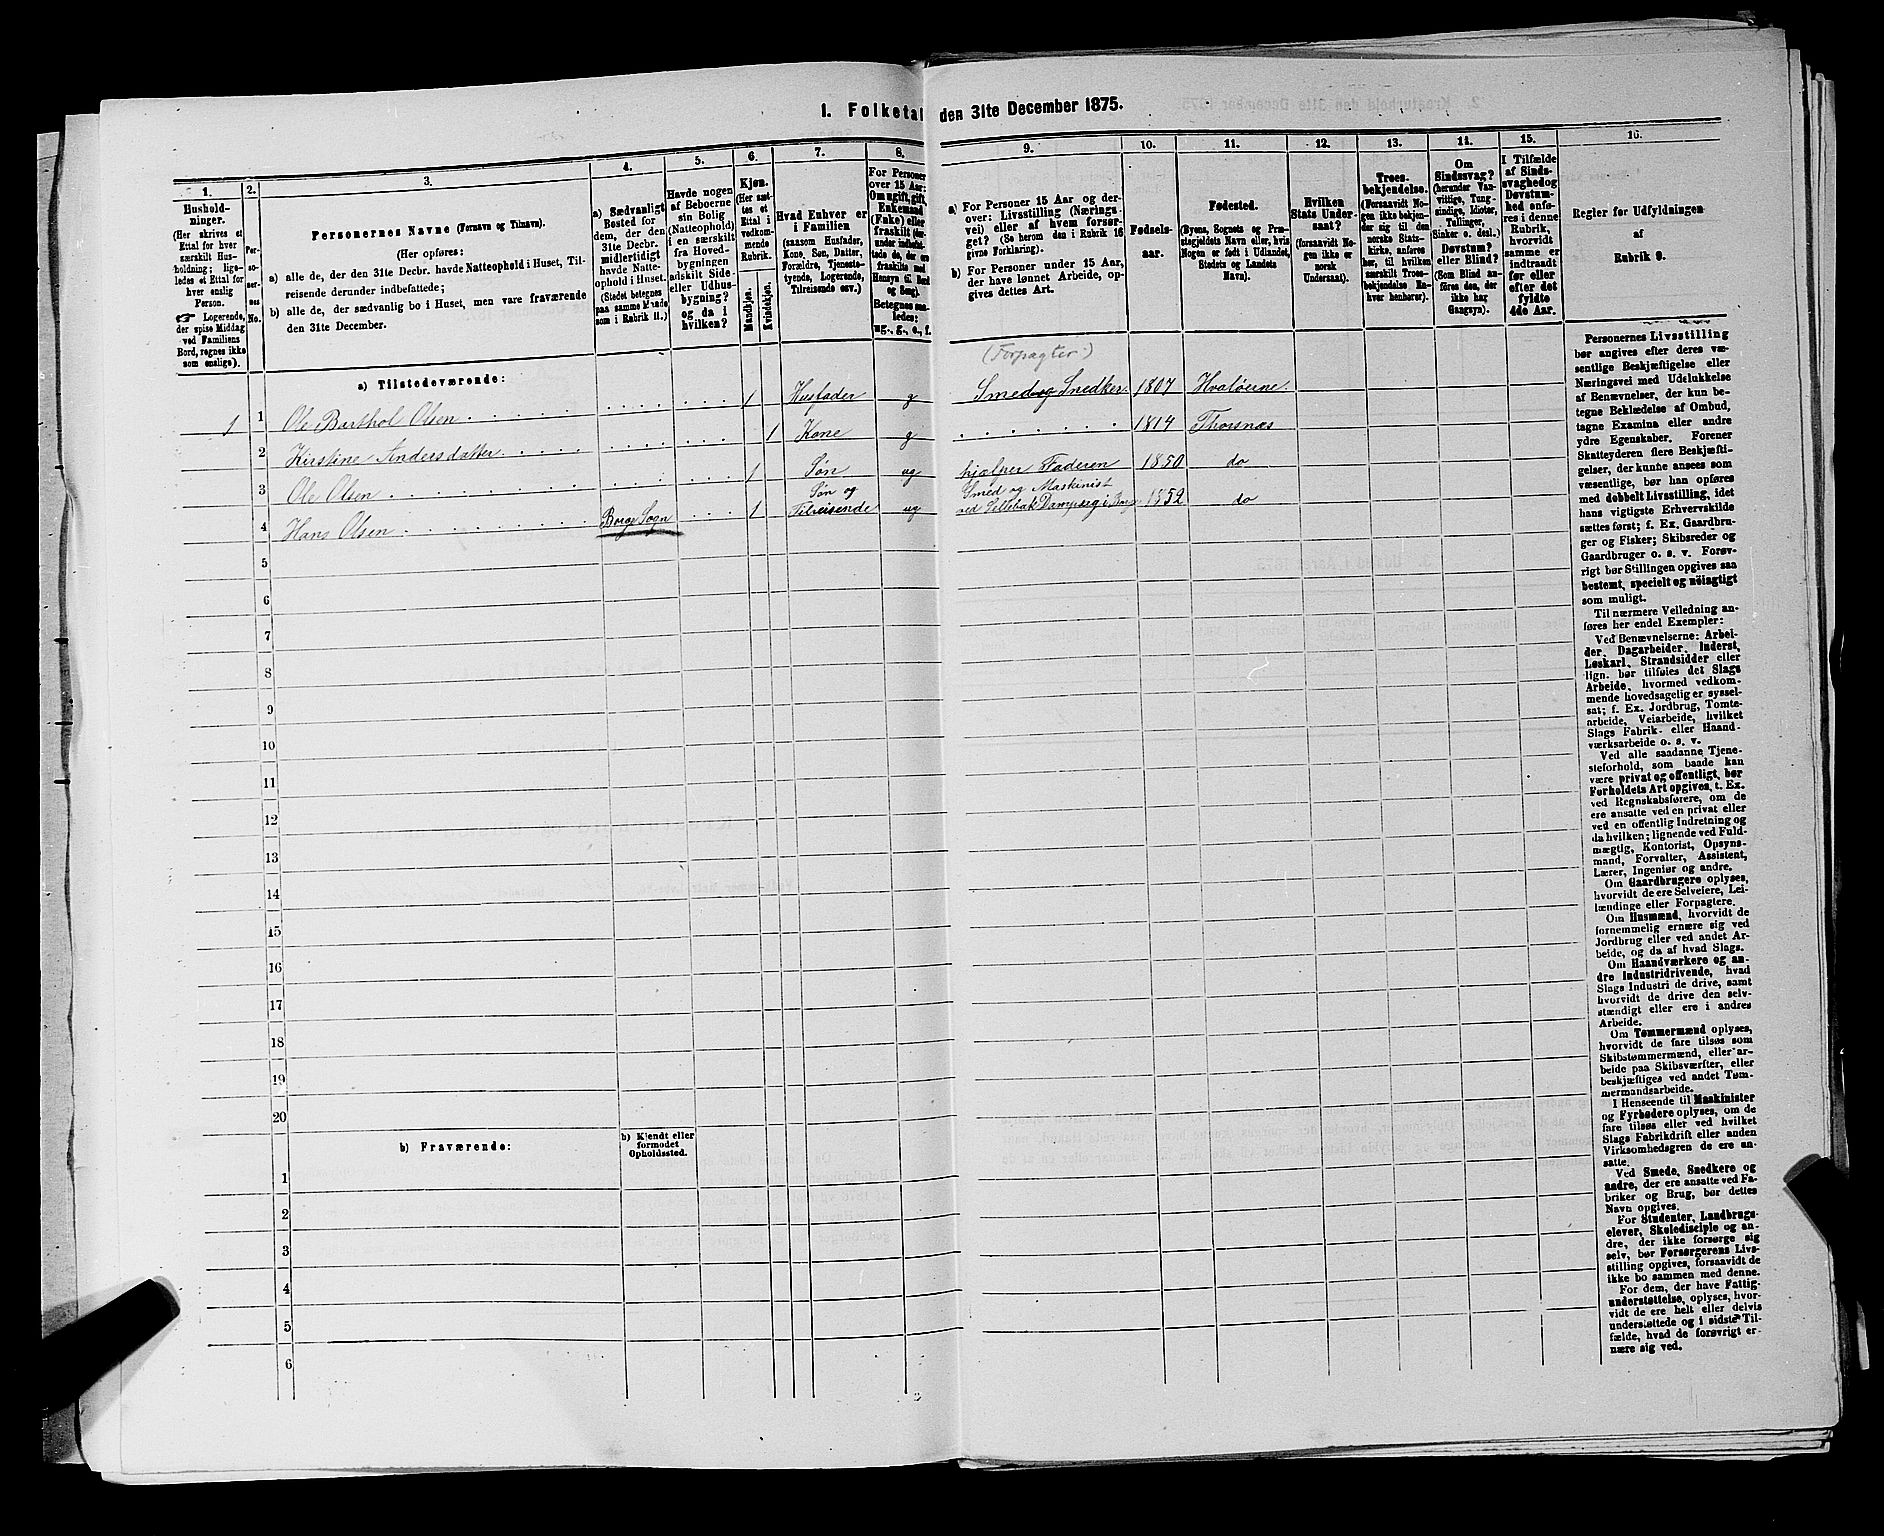 1. Folketal den 31te December 1875.
1.
Hushold-
ninger.
(Her skrives et
Ettal for hver
særskilt Hus-
holdning; lige-
ledes et Ettal for
hver enslig
Person.
☞ Logerende,
der spise Middag
ved Familiens
Bord, regnes ikke
som enslige).
2.
Per-
so-
ner-
nes
No.
3.
Personernes Navne (Fornavn og Tilnavn).
(Her opføres:
a) alle de, der den 31te Decbr. havde Natteophold i Huset, Til-
reisende derunder indbefattede;
b) alle de, der sædvanlig bo i Huset, men vare fraværende
den 31te December.
4.
a) Sædvanligt
Bosted for
dem, der den
31te Decbr.
midlertidigt
havde Natte-
ophold i Huset.
(Stedet betegnes
paa samme Maade
som i Rubrik 11.)
5.
Havde nogen
af Beboerne
sin Bolig
(Natteophold)
i en særskilt
fra Hoved-
bygningen
adskilt Side-
eller Udhus-
bygning?
og da i
hvilken?
6.
Kjøn.
(Her sæt-
tes et
Ettal i
vedkom-
mende
Rubrik.
Mandkjøn.
Kvindekjøn.
7.
Hvad Enhver er
i Familien
(saasom Husfader,
Kone, Søn, Datter,
Forældre, Tjeneste-
tyende, Logerende,
Tilreisende osv.)
8.
For Personer
over 15 Aar:
Om ugift, gift,
Enkemand
(Enke) eller
fraskilt
Betegnes saa-
ledes:
ug., g., e., f.
9.
a) For Personer 15 Aar og der-
over: Livsstilling (Nærings-
vei) eller af hvem forsør-
get? (Se herom den i Rubrik 16
givne Forklaring).
b) For Personer under 15 Aar,
der have lønnet Arbeide, op-
gives dettes Art.
10.
Fødsels-
aar.
11.
Fødested.
(Byens, Sognets og Præ-
stegjeldets Navn eller, hvis
Nogen er født i Udlandet,
Stedets og Landets
Navn).
12.
Hvilken
Stats Under-
saat?
(forsaavidt No-
gen ikke er
norsk
Undersaat).
13.
Troes-
bekjendelse.
(Forsaavidt No-
gen ikke bekjen-
der sig til den
norske Stats-
kirke, anføres
her, til hvilken
særskilt Troes-
bekjendelse En-
hver henhører).
14.
Om
Sindssvag?
(herunder Van-
vittige, Tung-
sindige, Idioter,
Tullinger,
Sinker o. desl.)
Døvstum?
eller Blind?
(Som Blind an-
føres den, der
ikke har
Gangsyn).
15.
I Tilfælde
af Sinds-
svaghed og
Døvstum-
hed anfø-
res i denne
Rubrik,
hvorvidt
samme er
indtraadt
før eller
efter det
fyldte
4de Aar.
16.
Regler for Udfyldningen
af
Rubrik 9.
a) Tilstedeværende:
(Forpagter)
1 1 Ole Barthol Olsen 1 Husfader g Smed og Snedker 1807 Hvaløerne
2 Kirstine Andersdatter 1 Kone g 1814 Thorsnæs
3 Ole Olsen 1 Søn ug hjælper Faderen 1850 do
4 Hans Olsen Borge Sogn 1 Søn og Tilreisende ug Smed og Maskinist
ved Sellebak Dampsag i Borge 1852 do
5
6
7
8
9
10
11
12
13
14
15
16
17
18
19
20
b) Fraværende:
b) Kjendt eller
formodet
Opholdssted.
1
2
3
4
5
6
Personernes Livsstilling
bør angives efter deres væ-
sentlige Beskjæftigelse eller
Næringsvei med Udelukkelse
af Benævnelser, der kun be-
tegne Beklædelse af Ombud,
tagne Examina eller andre
ydre Egenskaber. Forener
Skatteyderen flere Beskjæfti-
gelser, der kunne ansees som
væsentlige, bør han opføres
med dobbelt Livsstilling, idet
hans vigtigste Erhvervskilde
sættes først; f. Ex. Gaardbru-
ger og Fisker; Skibsreder og
Gaardbruger o. s. v. Forøv-
rigt bør Stillingen opgives saa
bestemt, specielt og nöiagtigt
som muligt.
Til nærmere Veiledning an-
føres her endel Exempler:
Ved Benævnelserne: Arbei-
der, Dagarbeider, Inderst,
Løskarl, Strandsidder eller
lign. bør tilføies det Slags
Arbeide, hvormed vedkom-
mende hovedsagelig er syssel-
sat; f. Ex. Jordbrug, Tomte-
arbeide, Veiarbeide, hvilket
Slags Fabrik- eller Haand-
værksarbeide o. s. v.
Ved alle saadanne Tjene-
steforhold, som baade kan
være privat og offentligt, bør
Forholdets Art opgives, t. Ex.
ved Regnskabsførere, om de
ere ansatte ved en privat eller
ved en offentlig Indretning og
da hvilken; lignende ved Fuld-
mægtig, Kontorist, Opsyns-
mand, Forvalter, Assistent,
Lærer, Ingeniør og andre.
Om Gaardbrugere oplyses,
hvorvidt de ere Selveiere, Lei-
lændinge eller Forpagtere.
Om Husmænd, hvorvidt de
fornemmelig ernære sig ved
Jordbrug eller ved andet Ar-
beide, og da af hvad Slags.
Om Haandværkere og an-
dre Industridrivende, hvad
Slags Industri de drive, samt
hvorvidt de drive den selv-
stændigt eller ere i andres
Arbeide.
Om Tømmermænd oplyses,
hvorvidt de fare tilsøs som
Skibstømmermænd, eller ar-
beide paa Skibsværfter, eller
beskjæftiges ved andet Tøm-
mermandsarbeide.
I Henseende til Maskinister
og Fyrbødere oplyses, om de
fare tilsøs eller ved hvilket
Slags Fabrikdrift eller anden
Virksomhedsgren de ere an-
satte.
Ved Smede, Snedkere og
andre, der ere ansatte ved Fa-
briker og Brug, bør dettes
Navn opgives.
For Studenter, Landbrugs-
elever, Skoledisciple og an-
dre, der ikke forsørge sig
selv, bør Forsørgerens Livs-
stilling opgives, forsaavidt de
ikke bo sammen med denne.
For dem, der have Fattig-
understøttelse, oplyses, hvor-
vidt de ere helt eller delvis
understøttede og i sidste Til-
fælde, hvad de forøvrigt er-
nære sig ved.